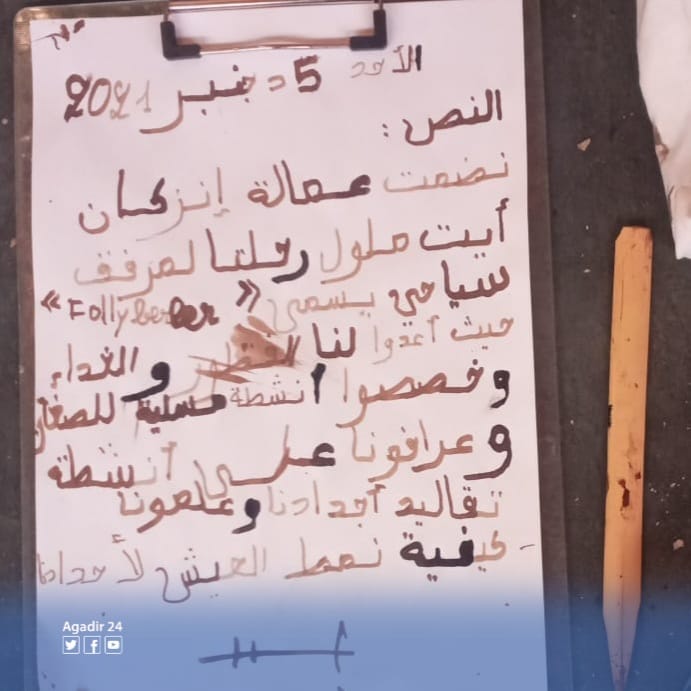 الأحد 5 دجنبر 2021
النص:
نضمت عمالة إنزكان
أيت ملول رحلتنا لمرفق
سياحي يسمى «Follyberber»
حيث أعدوا لنا الفطور و الغداء
وخصصوا أنشطة مسلية للصغار
وعرافونا على أنشطة
تقاليد أجدادنا وعلمونا
كيفية نمط العيش لأجدادنا
Agadir 24